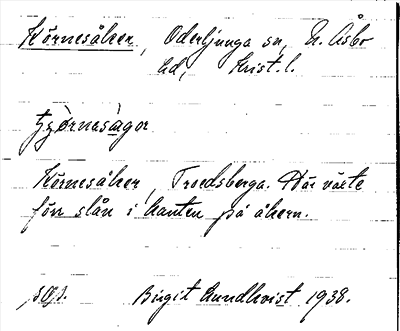 Körnesåker, Oderljunga sn, N. Åsbo
hd, Krist. l.
Körnesåker, Troedsberga. Där växte
förr slån i kanten på åkern.
Birgit Lundkvist 1938.